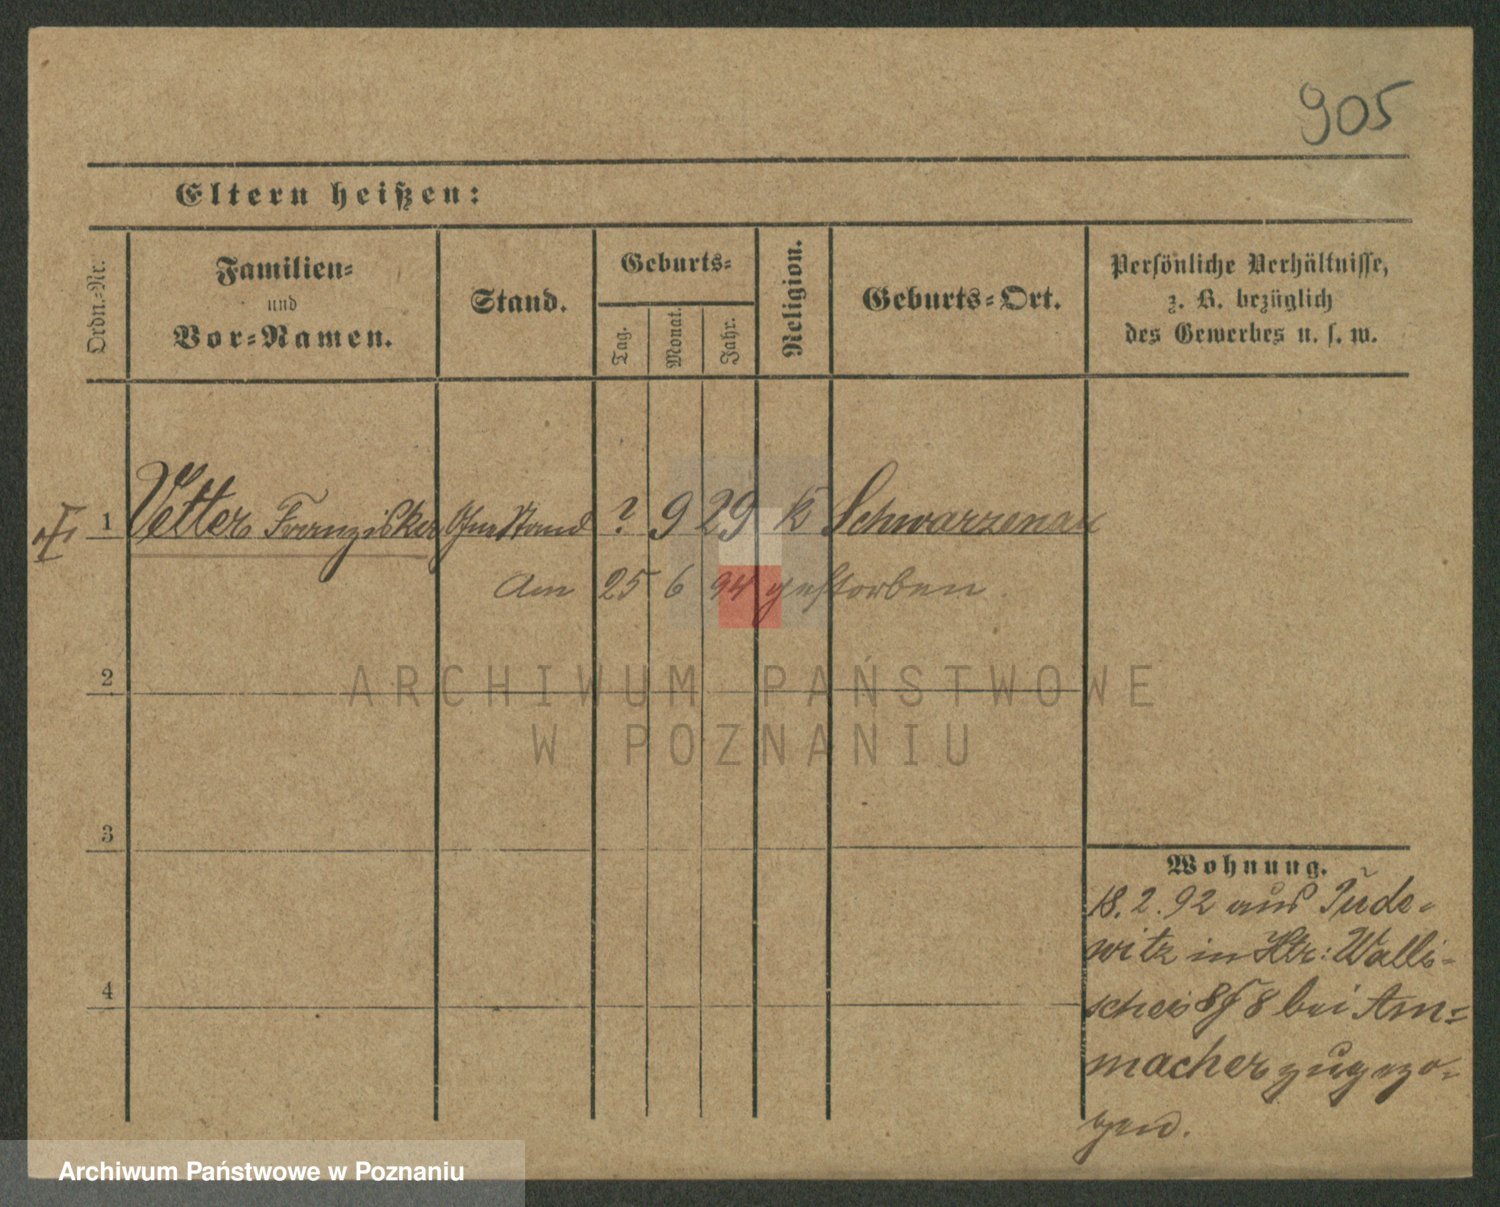 905
Eltern heißen:
Ordn.-Nr.
Familien-
und
Vor-Namen.
Stand.
Geburts-
Tag.
Monat.
Jahr.
Religion.
Geburts-Ort.
Persönliche Verhältnisse,
z. B. bezüglich
des Gewerbes u. s. w.
1 Vetter Franzisker Ohne Stand ? 9 29 k Schwarzenau
Am 25 6 94 gestorben.
2
ARCHIWUM PAŃSTWOWE
W POZNANIU
3
4
Wohnung.
18. 2. 92 aus Pude-
witz in Walli-
schei 8 bei Am-
macher zugezo-
gen.
Archiwum Państwowe w Poznaniu